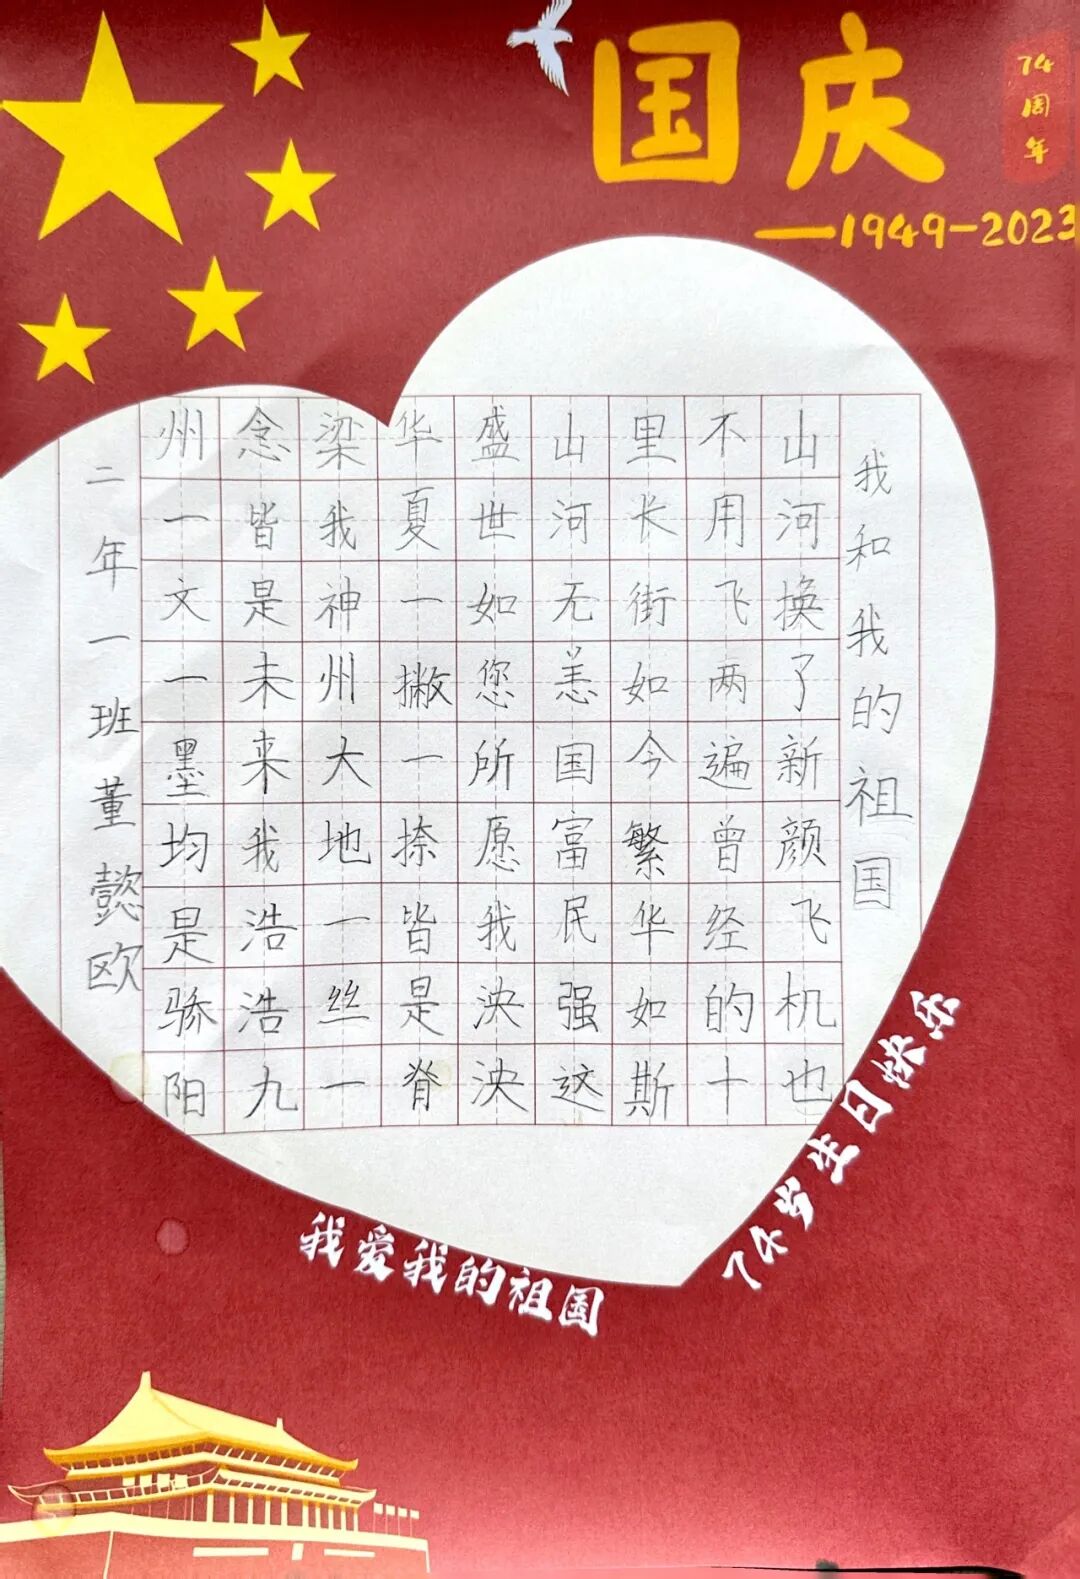 国庆
74周年
—1949-2023
我和我的祖国
山河换了新颜飞机也
不用飞两遍曾经的十
里长街如今繁华如斯
山河无恙国富民强这
盛世如您所愿我泱泱
华夏一撇一捺皆是脊
梁我神州大地一丝一
念皆是未来我浩浩九
州一文一墨均是骄阳
二年一班董懿欧
我爱我的祖国
74岁生日快乐